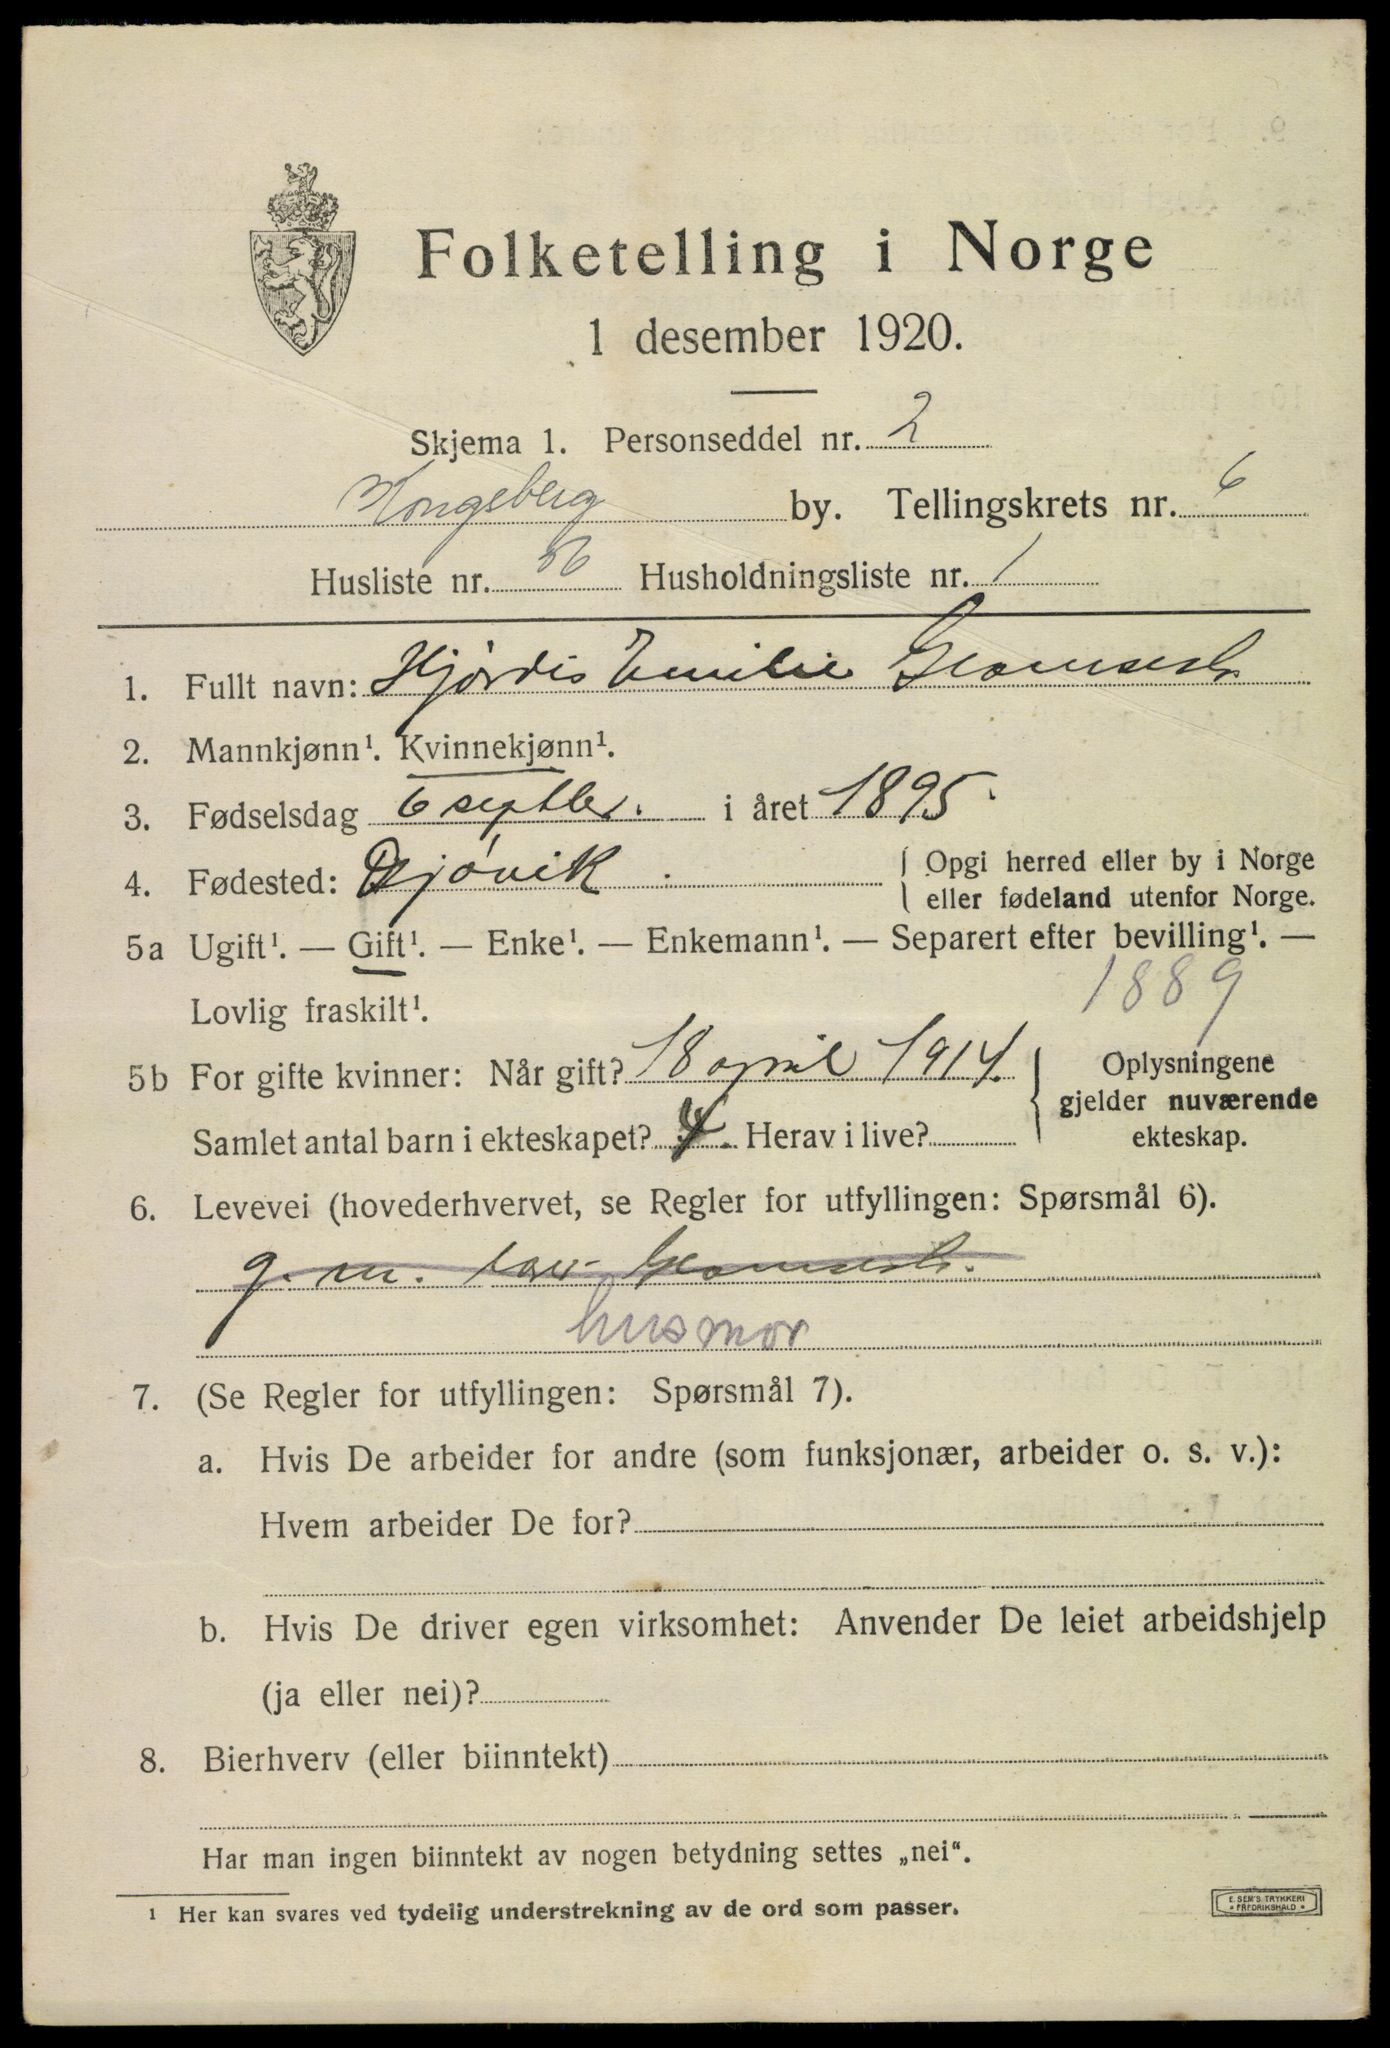 Folketelling i Norge
1 desember 1920.
Skjema 1. Personseddel nr. 2
Kongsberg by. Tellingskrets nr. 6
Husliste nr. Husholdningsliste nr. 1
1. Fullt navn: Hjørdis Emilie
2. Mannkjønn¹. Kvinnekjønn¹.
3. Fødselsdag 6 septber. i året 1895.
4. Fødested: Gjøvik. { Opgi herred eller by i Norge
eller fødeland utenfor Norge.
5a Ugift¹. — Gift¹. — Enke¹. — Enkemann¹. — Separert efter bevilling¹. —
Lovlig fraskilt¹. 1889
5b For gifte kvinner: Når gift? 18 april 1914. { Oplysningene
gjelder nuværende
Samlet antal barn i ekteskapet? 4. Herav i live? ekteskap.
6. Levevei (hovederhvervet, se Regler for utfyllingen: Spørsmål 6).
g. m.
husmor
7. (Se Regler for utfyllingen: Spørsmål 7).
a. Hvis De arbeider for andre (som funksjonær, arbeider o. s. v.):
Hvem arbeider De for?
b. Hvis De driver egen virksomhet: Anvender De leiet arbeidshjelp
(ja eller nei)?
8. Bierhverv (eller biinntekt)
Har man ingen biinntekt av nogen betydning settes „nei“.
¹ Her kan svares ved tydelig understrekning av de ord som passer.
E. SEM'S TRYKKERI
FREDRIKSHALD